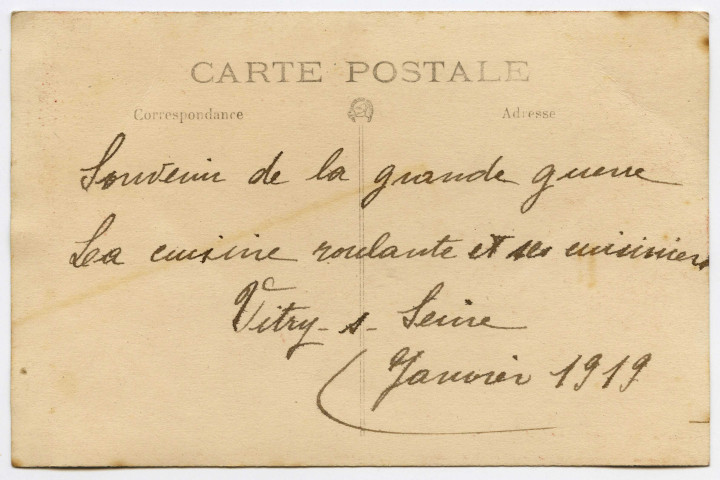 CARTE POSTALE
Correspondance Adresse
Souvenir de la grande guerre
La cuisine roulante et ses cuisiniers
Vitry-s-Seine
Janvier 1919